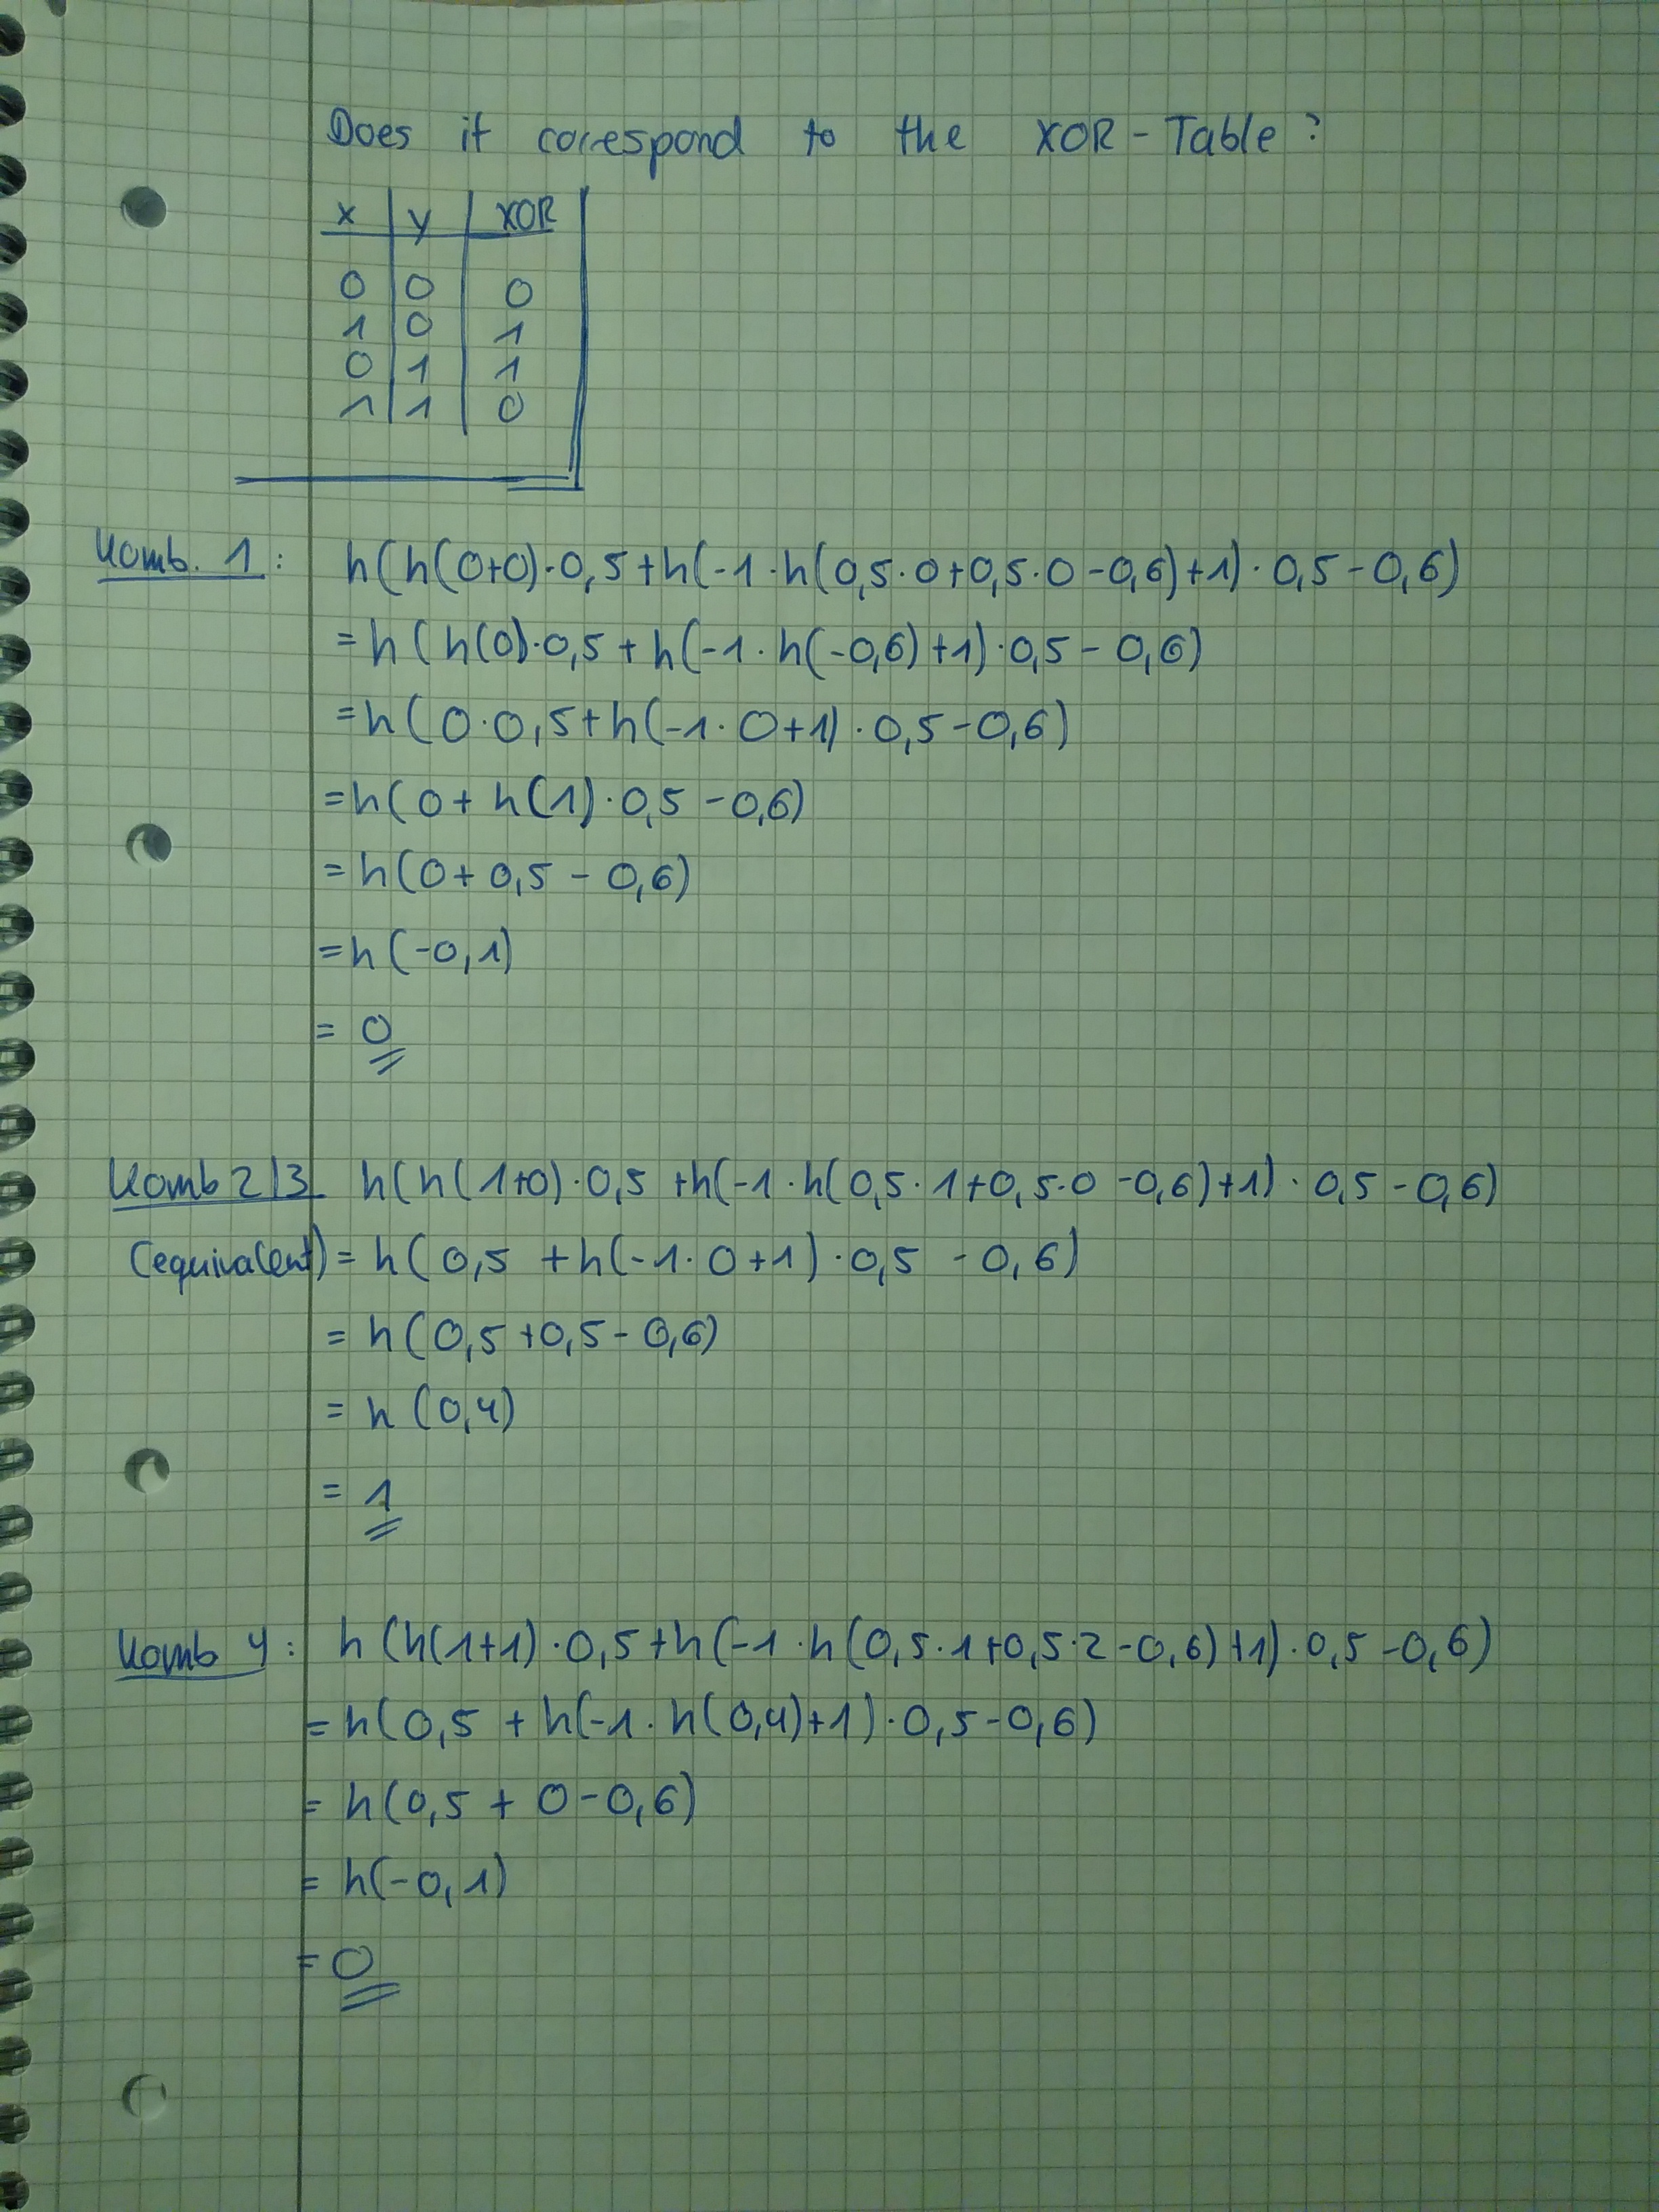 Does it correspond to the XOR-Table?
x | y | XOR
0 | 0 | 0
1 | 0 | 1
0 | 1 | 1
1 | 1 | 0
Komb. 1: h(h(0+0)·0,5+h(-1·h(0,5·0+0,5·0-0,6)+1)·0,5-0,6)
=h(h(0)·0,5+h(-1·h(-0,6)+1)·0,5-0,6)
=h(0·0,5+h(-1·0+1)·0,5-0,6)
=h(0+h(1)·0,5-0,6)
=h(0+0,5-0,6)
=h(-0,1)
=0
Komb 2/3 h(h(1+0)·0,5+h(-1·h(0,5·1+0,5·0-0,6)+1)·0,5-0,6)
(equivalent)=h(0,5+h(-1·0+1)·0,5-0,6)
=h(0,5+0,5-0,6)
=h(0,4)
=1
Komb 4: h(h(1+1)·0,5+h(-1·h(0,5·1+0,5·2-0,6)+1)·0,5-0,6)
=h(0,5+h(-1·h(0,4)+1)·0,5-0,6)
=h(0,5+0-0,6)
=h(-0,1)
=0